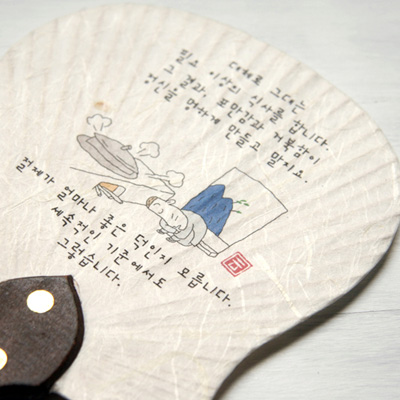 대체로 그대는
필요 이상의 식사를 합니다.
그 결과, 포만감과 거북함이
정신을 멍하게 만들고 말지요.
절제가 얼마나 좋은 덕인지 모릅니다.
세속적인 기준에서도
그렇습니다.